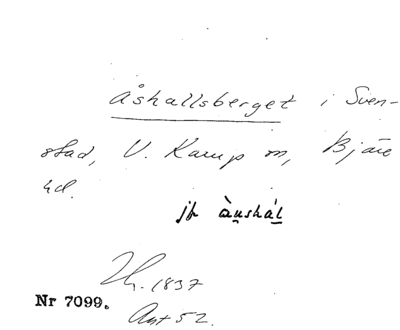 Åshallsberget i Sven-
stad, V. Karup sn, Bjäre
hd.
jfr àu̠shál̠
Th. 1837
Nr 7099.
Ant 52.